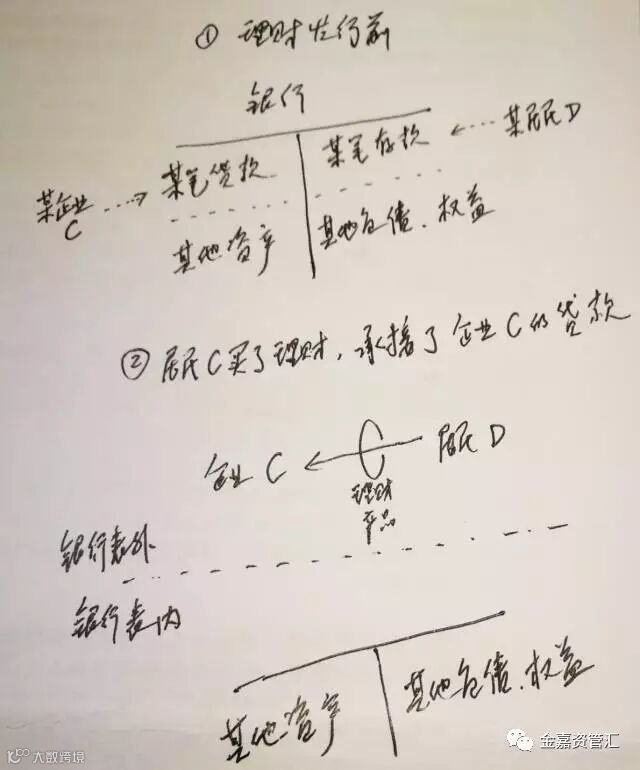 ① 理财发行前
银行
某笔贷款
某笔存款
某居民D
某企业
C
其他资产
其他负债、权益
② 居民C买了理财，承接了企业C的贷款
企业 C
居民 D
理财
产品
银行表外
银行表内
其他资产
其他负债、权益
大数跨境
金嘉资管汇